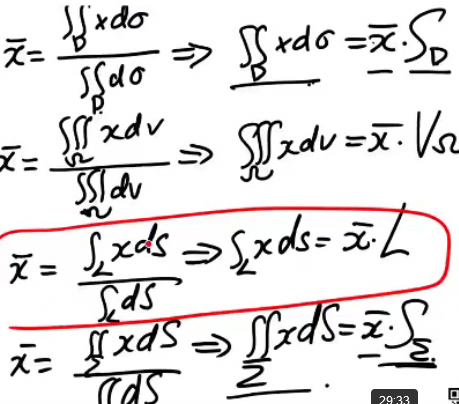 x̄ = ∬_D xdσ / ∬_D dσ ⇒ ∬_D xdσ = x̄·S_D
x̄ = ∭_Ω xdv / ∭_Ω dv ⇒ ∭_Ω xdv = x̄·V_Ω
x̄ = ∫_L xds / ∫_L ds ⇒ ∫_L xds = x̄·L
x̄ = ∬_Σ xdS / ∬ dS ⇒ ∬_Σ xdS = x̄·S_Σ.
29:33